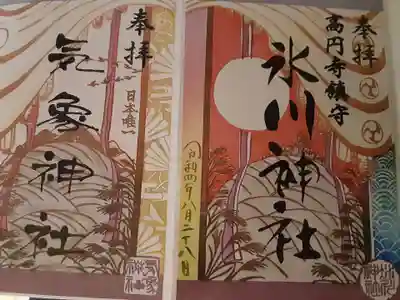 奉拝
高円寺鎮守
氷川神社
令和四年八月二十八日
奉拝
日本唯一
気象神社